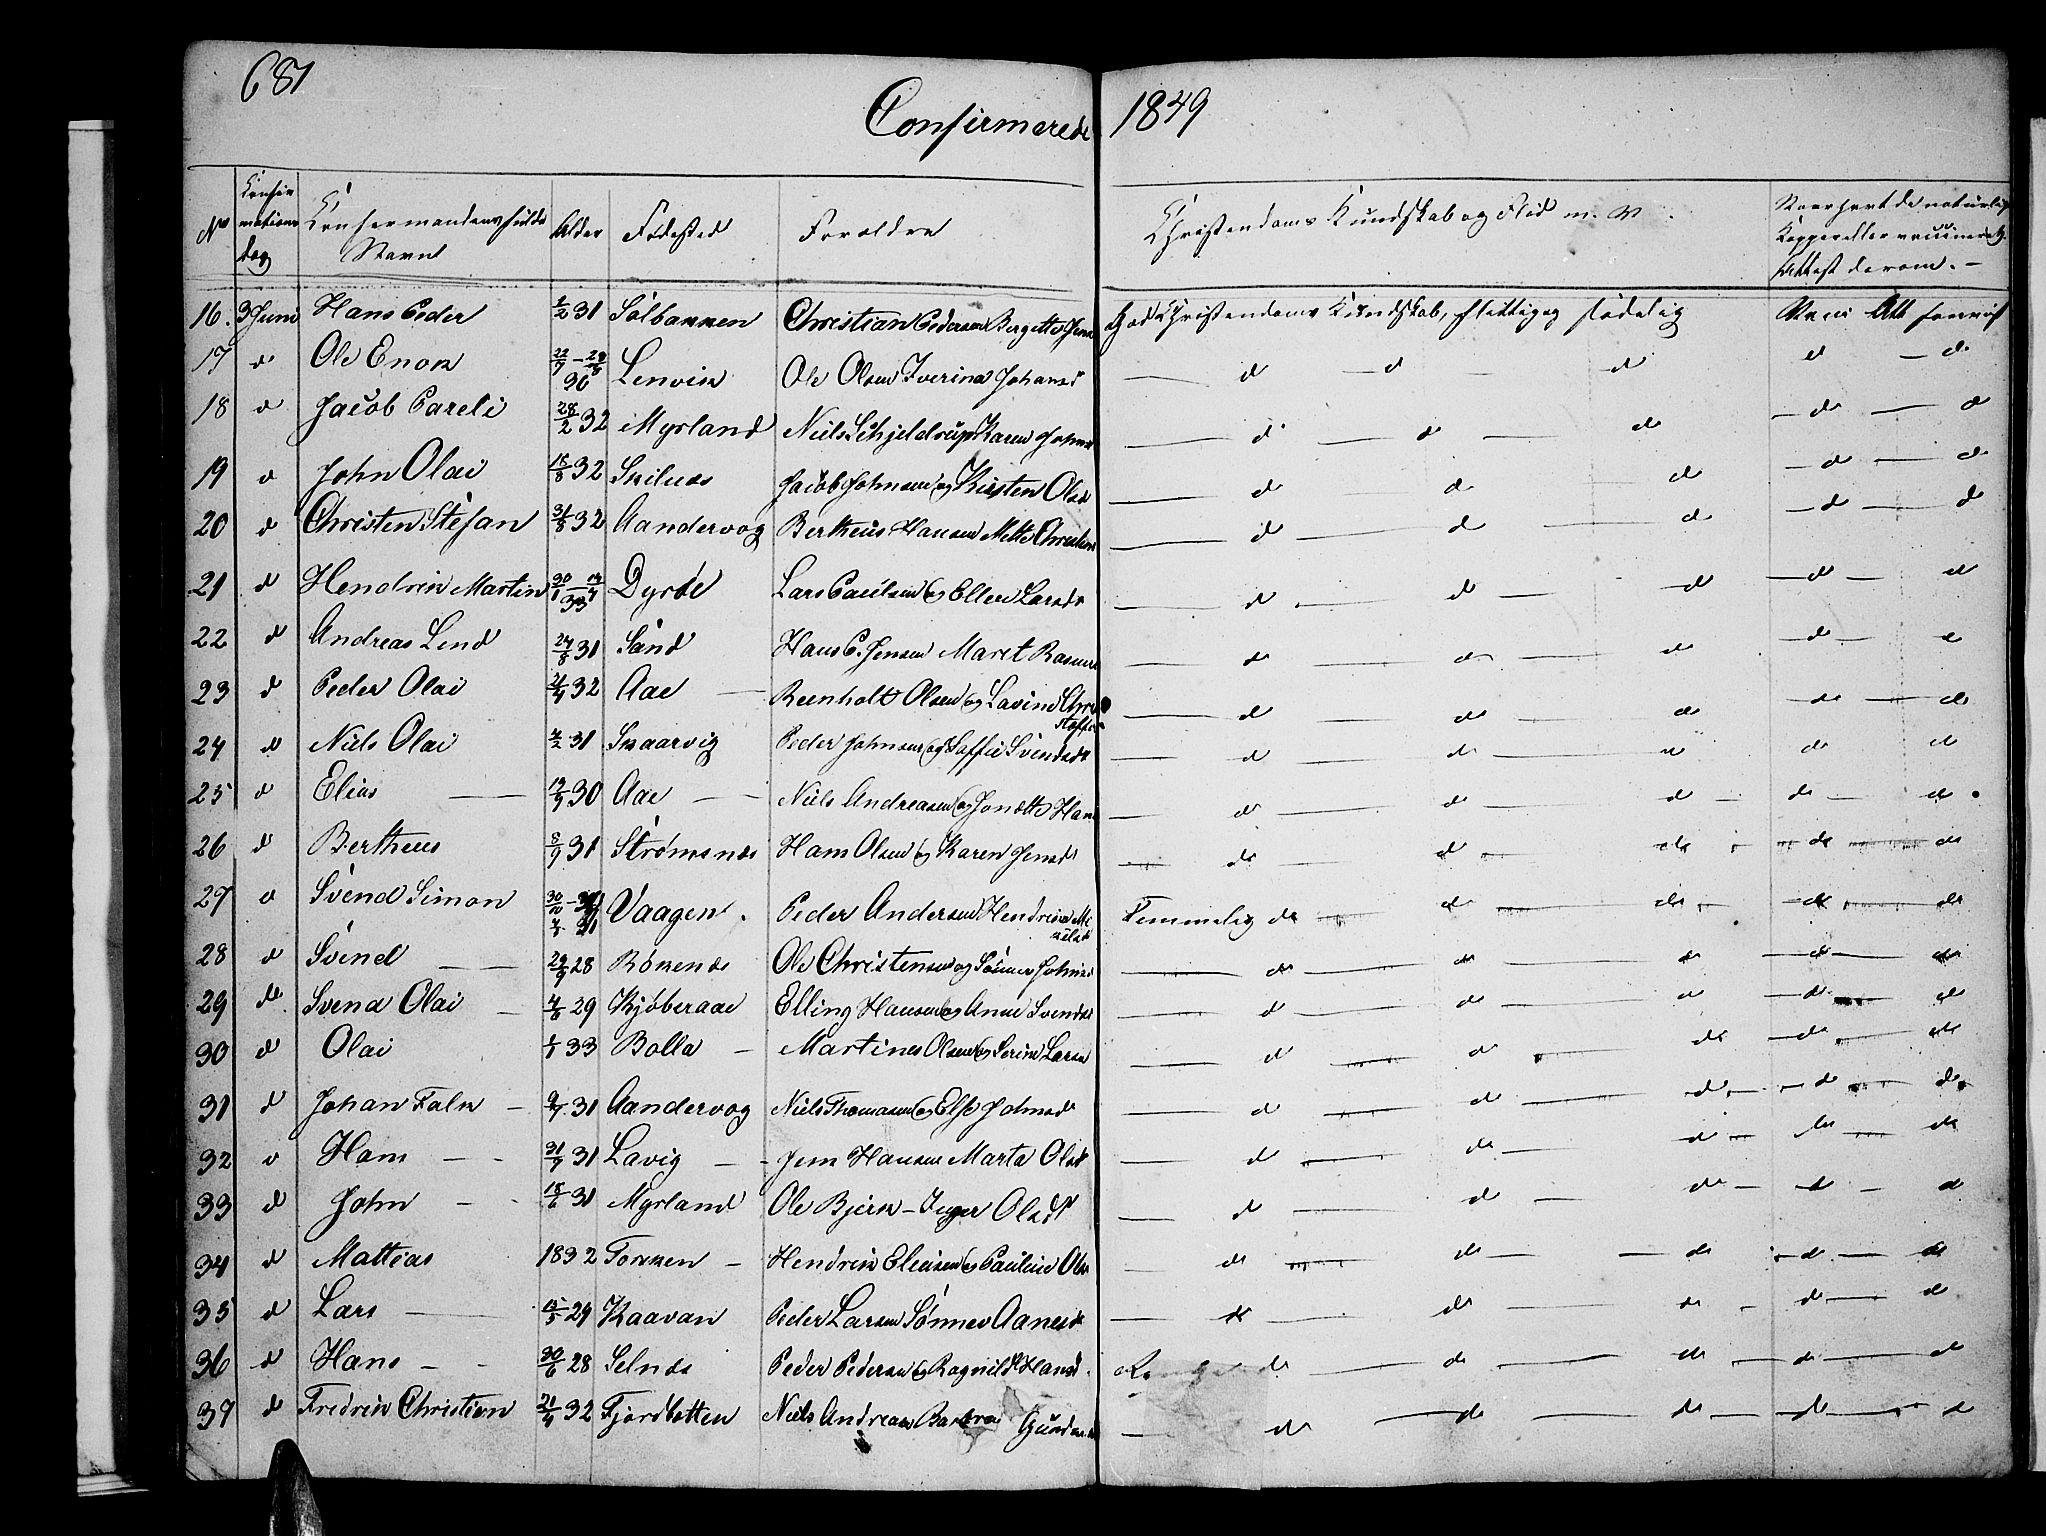 681
Confirmerede 1849
No
Confir
mations
dag
Confirmandens fulde
Navn
Alder
Fødested
Forældre
Christendoms Kundskab og Flid m. V.
Naar havt de naturlige
Kopper eller vaccineret
Attest derom. -
16. 3 Juni Hans Peder 1/2 31 Solbakken Christian Pedersen Bergette Jens God Christendoms Kundskab, flittig og sædelig Att
17 d Ole Enok 30 Lenvik Ole Olsen Iverina Johansd d d d d d
18 d Jacob Pareli 28/2 32 Myrland Niels Schjeldrup Karen d d d d d
19 d John Olai 32 Skilnæs Jacob Johnsen og Kirsten Olsd d d d d d
20 d Christen Stefan 32 Aandervog Bertheus Hansen Mette d d d d d
21 d Hendrik Martin 33 Dyröe Lars Paulsen og Ellen Larsd d d d d d
22 d Andreas Lend 24/8 31 Sand Hans P. Jensen Maret Rasmus d d d d d
23 d Peder Olai 32 Aae Reenholt Olsen og Lavina Chri
stoffer d d d d d
24 d Niels Olai 31 Skaarvig Peder Johnsen og Soffie Svendsd d d d d d
25 d Elias 30 Aae Niels Andreasen og Jonette Hans d d d d d
26 d Bertheus 8/9 31 Strömsnes Hans Olsen og Karen Jensd d d d d d
27 d Svend Simon 31 Vaagen Peder Andersen Hendrikka Mi
kelsd Temmelig d d d d d
28 d Svend 28 Röknes Ole Christensen og Sönnev d d d d d
29 d Svend Olai 4/8 29 Kjöberaae Elling Hansen og Anne Svendsd d d d d d
30 d Olai 33 Bolla Martines Olsen og Serine Larsd d d d d d
31 d Johan Falk 31 Aandervog Niels Thomasen og Else Johnsd d d d d d
32 d Hans 31 Lavig Jens Hansen Marta Olsd d d d d d
33 d John 31 Myrland Ole Bjerk - Inger Olsdt d d d d d
34 d Mattias 1832 Torsken Hendrik Eliasen og Pauline Ols d d d d d
35 d Lars 15/5 29 Kaavan Peder Larsen Sönnev Aanesd d d d d d
36 d Hans 30/6 28 Selnæs Peder Pedersen og Ragnild Hansd d d d d d
37 d Fredrik Christian 21/4 32 Fjordbotten Niels Andreas Barbra d d d d d